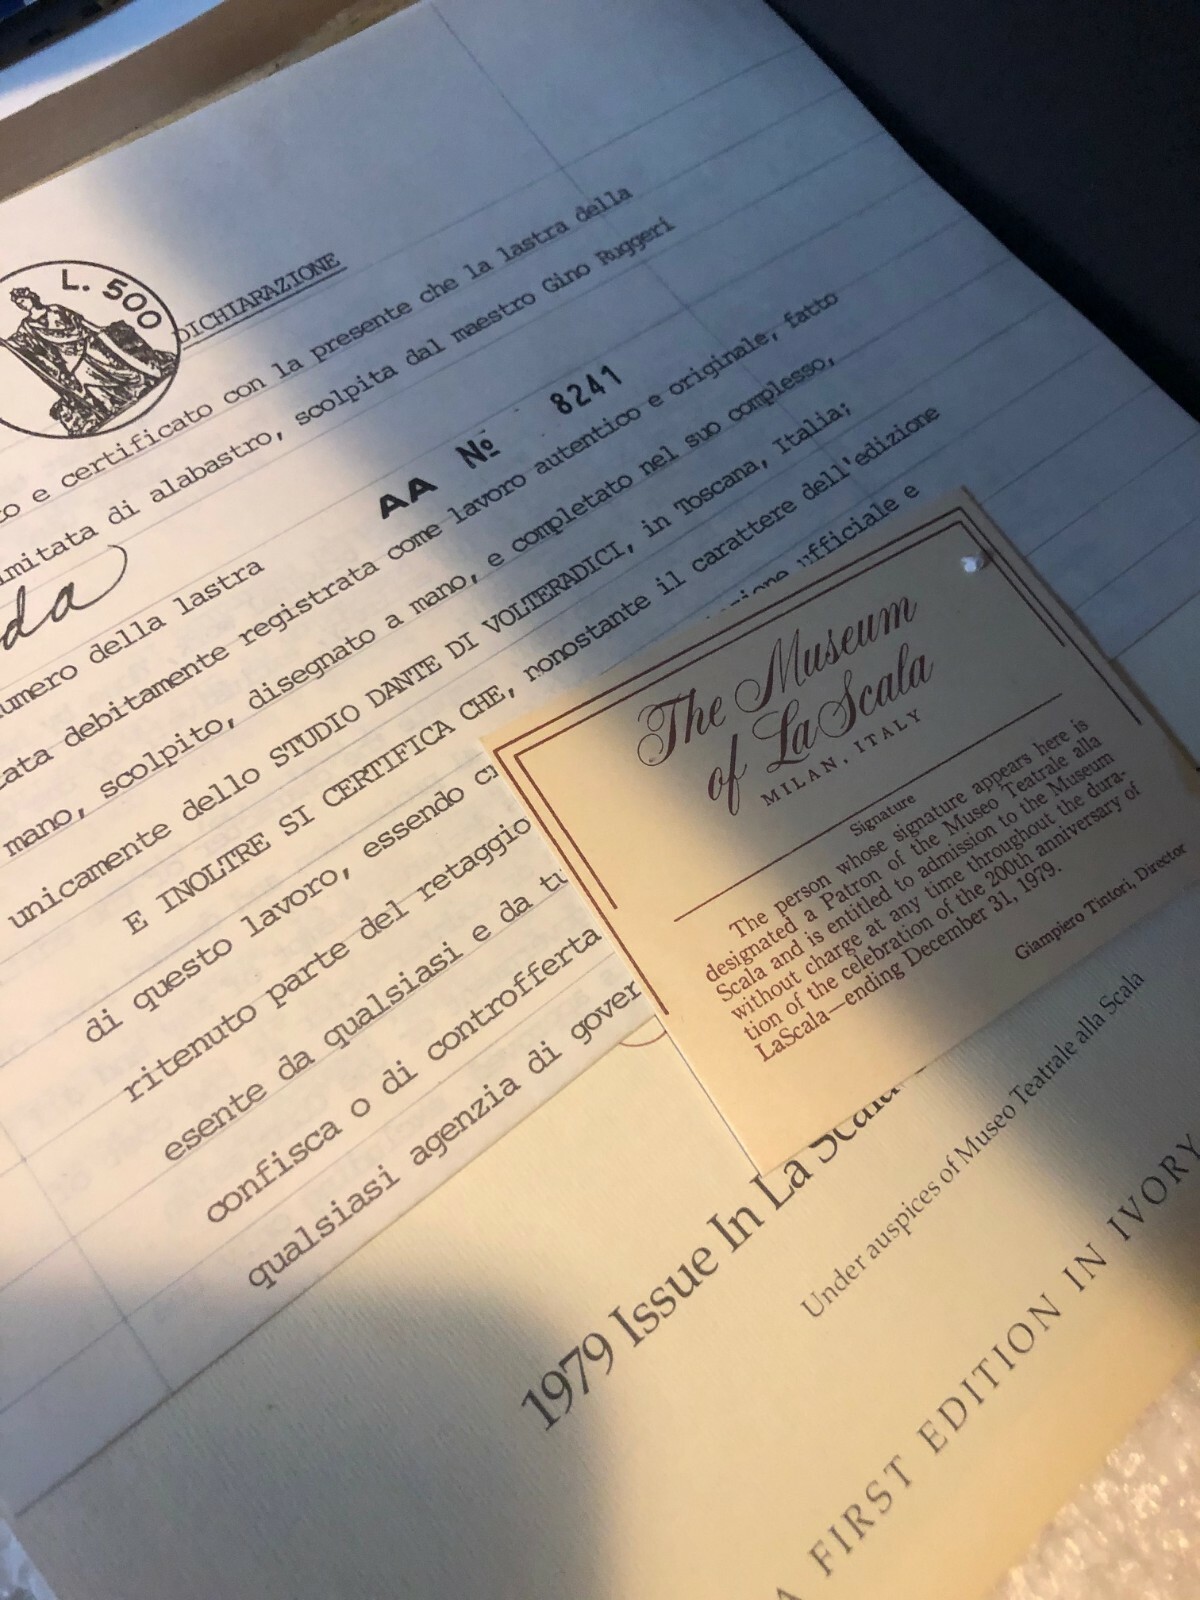 L. 500
DICHIARAZIONE
e certificato con la presente che la lastra della
di alabastro, scolpita dal maestro Gino Ruggeri
AA № 8241
della lastra
debitamente registrata come lavoro autentico e originale, fatto
mano, scolpito, disegnato a mano, e completato nel suo complesso,
unicamente dello STUDIO DANTE DI VOLTERADICI, in Toscana, Italia;
E INOLTRE SI CERTIFICA CHE, nonostante il carattere dell'edizione
di questo lavoro, essendo
ufficiale e
ritenuto parte del retaggio
esente da qualsiasi e da
confisca o di controfferta
qualsiasi agenzia di
The Museum
of La Scala
MILAN, ITALY
Signature
The person whose signature appears here is
designated a Patron of the Museo Teatrale alla
Scala and is entitled to admission to the Museum
without charge at any time throughout the dura-
tion of the celebration of the 200th anniversary of
LaScala—ending December 31, 1979.
Giampiero Tintori, Director
1979 Issue In La Scala
Under auspices of Museo Teatrale alla Scala
A FIRST EDITION IN IVORY